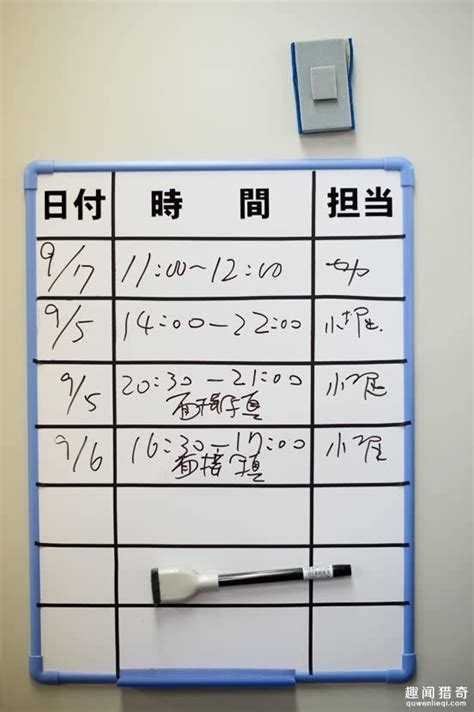 日付 時間 担当
9/17 11:00~12:00
9/5 14:00-22:00 小堀
9/5 20:30-21:00 小堀
面接写真
9/6 16:30-17:00 小堀
面接写真
趣闻猎奇
quwenlieqi.com